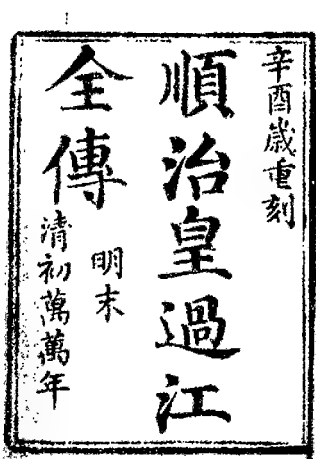 辛酉歳重刻
順治皇過江
全傳
明末
清初萬萬年